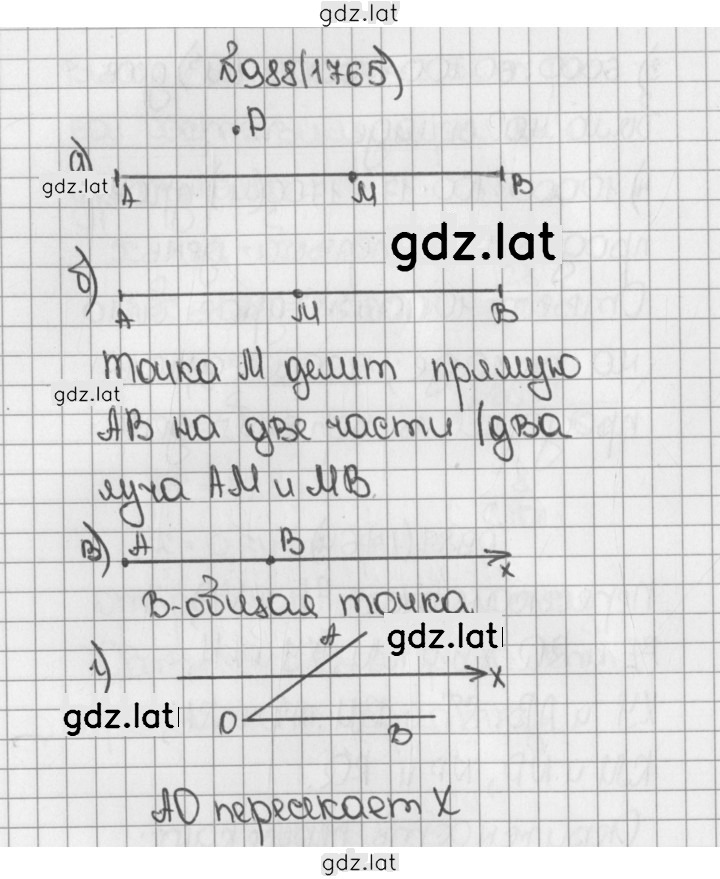 gdz.lat
№988(1765)
D
а)
gdz.lat
A M B
gdz.lat
б)
A M B
точка M делит прямую
gdz.lat
AB на две части (два
луча AM и MB.
в) A B x
B-общая точка
A gdz.lat
г) x
gdz.lat O B
AO пересекает X
gdz.lat